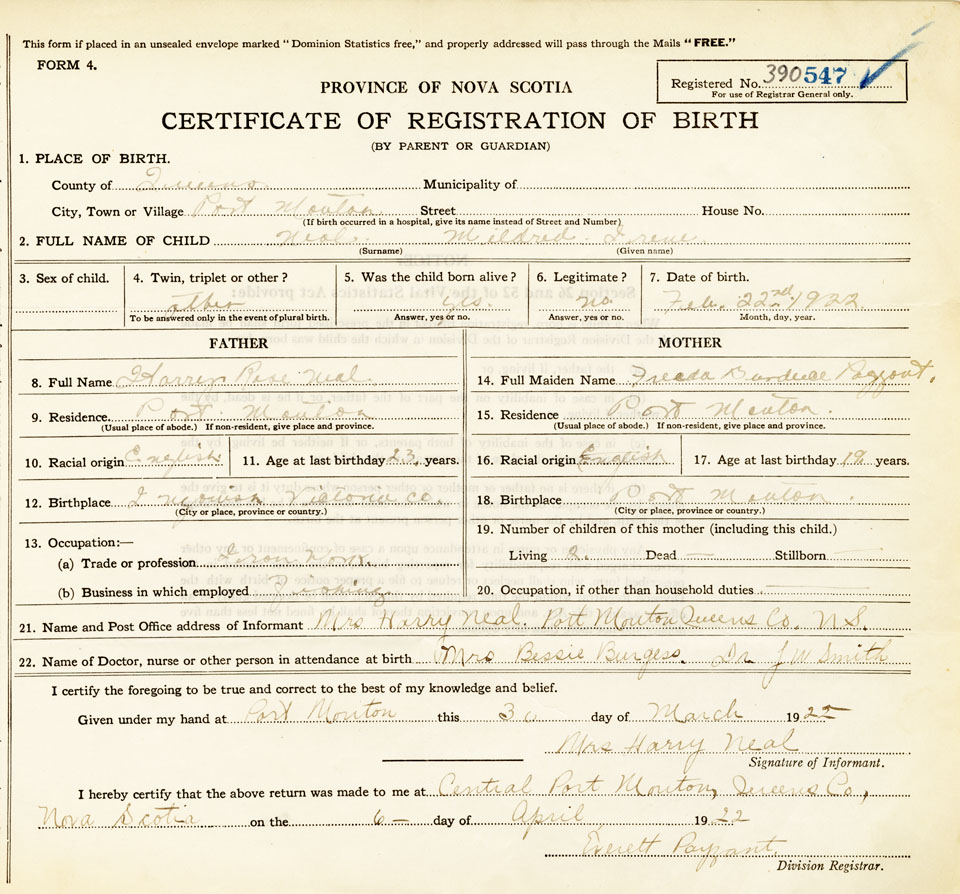 This form if placed in an unsealed envelope marked "Dominion Statistics free," and properly addressed will pass through the Mails "FREE."
FORM 4.
Registered No. 390547
For use of Registrar General only.
PROVINCE OF NOVA SCOTIA
CERTIFICATE OF REGISTRATION OF BIRTH
(BY PARENT OR GUARDIAN)
1. PLACE OF BIRTH.
County of Queens Municipality of
City, Town or Village Port Mouton Street House No.
(If birth occurred in a hospital, give its name instead of Street and Number)
2. FULL NAME OF CHILD Neal. Mildred Irene.
(Surname) (Given name)
3. Sex of child. 4. Twin, triplet or other? 5. Was the child born alive? 6. Legitimate? 7. Date of birth.
other yes no. Feb. 22nd 1922
To be answered only in the event of plural birth. Answer, yes or no. Answer, yes or no. Month, day, year.
FATHER MOTHER
8. Full Name Rose Neal. 14. Full Maiden Name Freeda
9. Residence. Port Mouton 15. Residence Port Mouton.
(Usual place of abode.) If non-resident, give place and province. (Usual place of abode.) If non-resident, give place and province.
10. Racial origin English 11. Age at last birthday 23, years. 16. Racial origin English 17. Age at last birthday 19 years.
12. Birthplace Victoria Co. 18. Birthplace Port Mouton.
(City or place, province or country.) (City or place, province or country.)
13. Occupation:— 19. Number of children of this mother (including this child.)
(a) Trade or profession Living 2. Dead — Stillborn
(b) Business in which employed 20. Occupation, if other than household duties
21. Name and Post Office address of Informant Mrs Harry Neal. Port Mouton Queens Co, N.S.
22. Name of Doctor, nurse or other person in attendance at birth Mrs Bessie Burgess. Dr J W Smith
I certify the foregoing to be true and correct to the best of my knowledge and belief.
Given under my hand at Port Mouton this 30 day of March 1922
Mrs Harry Neal
Signature of Informant.
I hereby certify that the above return was made to me at Central Port Mouton, Queens Co,
Nova Scotia on the 6— day of April 1922
Everett Payzant.
Division Registrar.